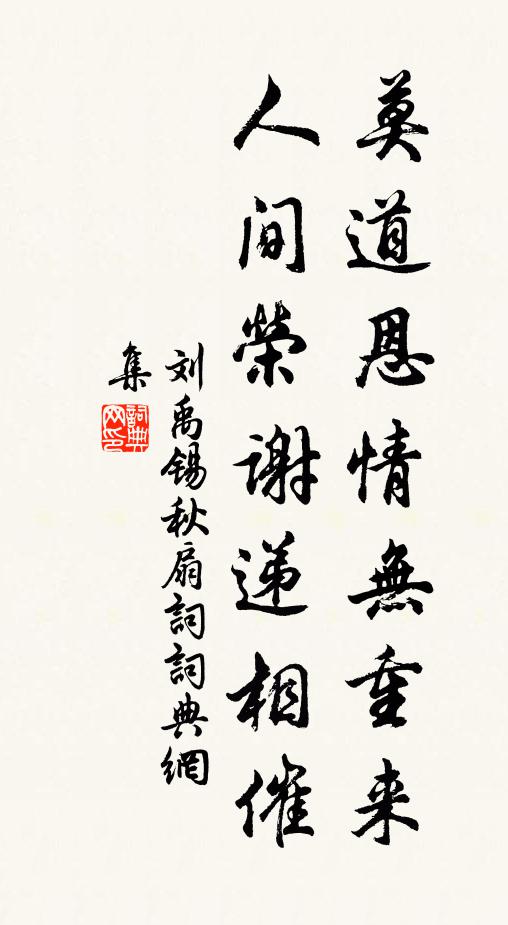 莫道恩情無重来
人间榮谢递相催
刘禹锡秋扇詞詞典網
集
詞典网印